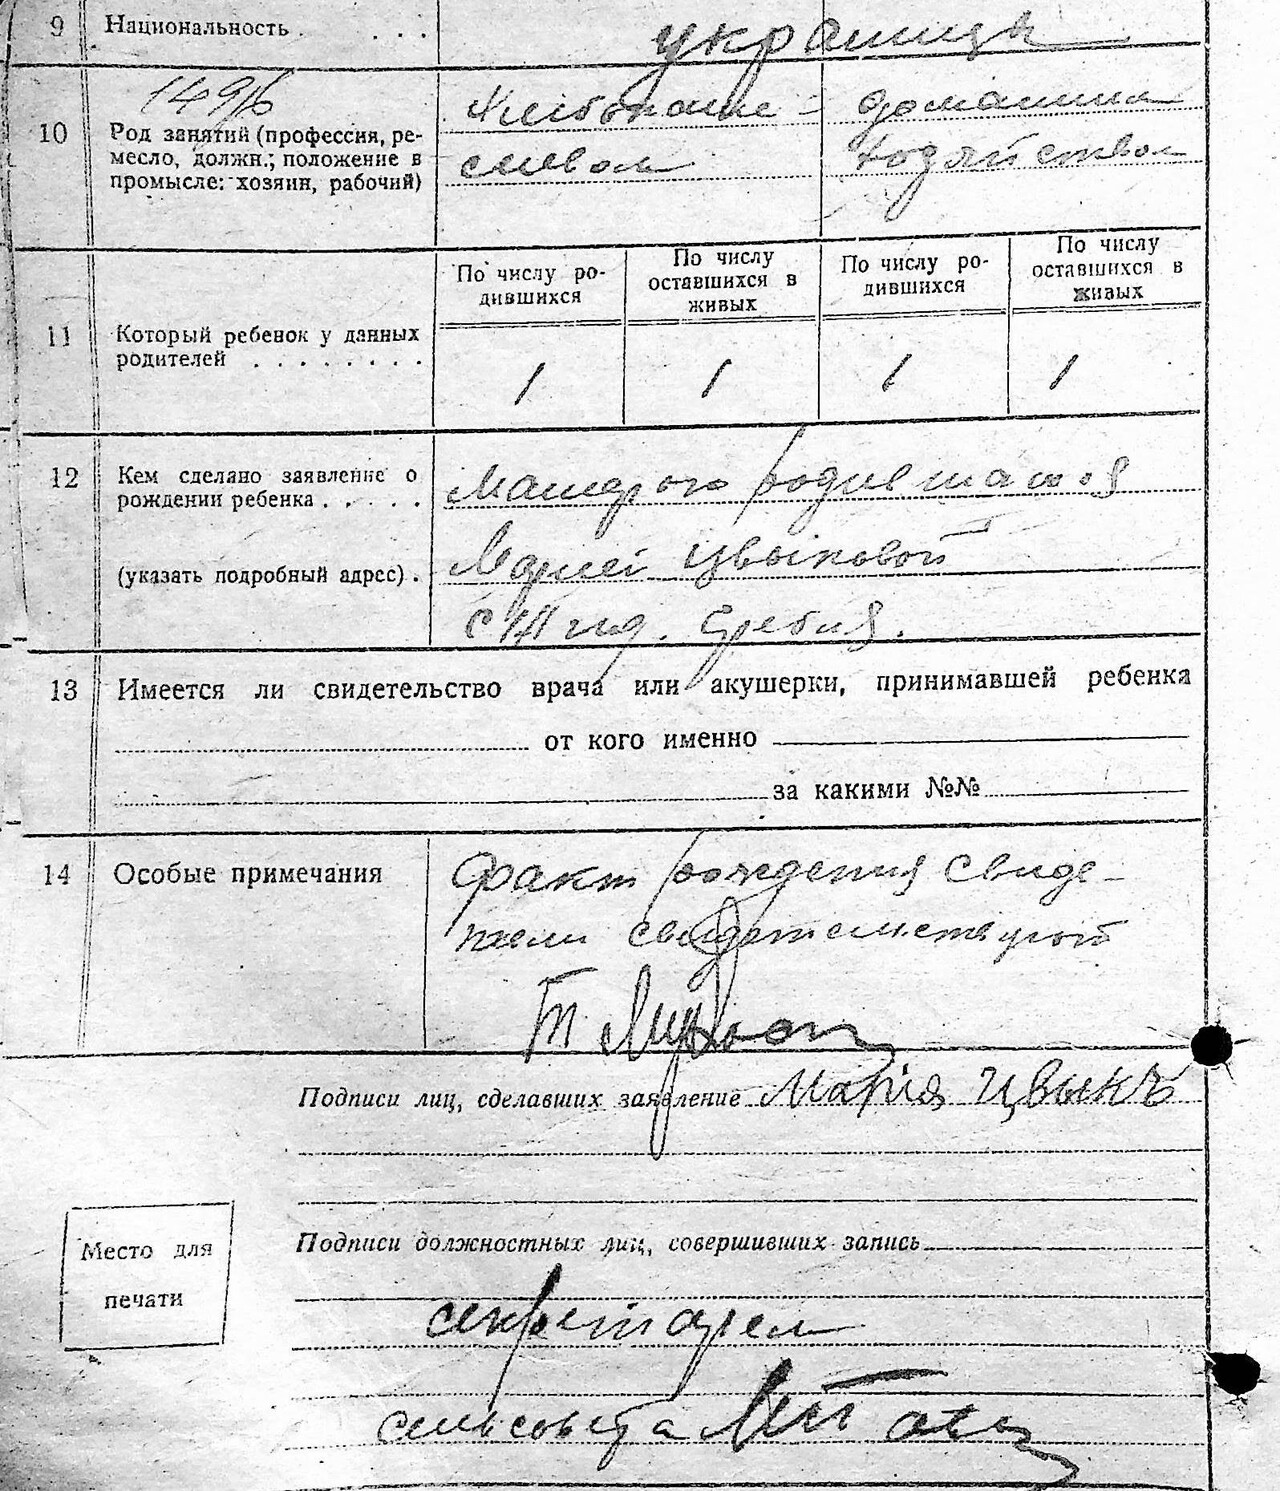 9 Национальность . . . . украинцы
149/6
10 Род занятий (профессия, ре-
месло, должн.; положение в
промысле: хозяин, рабочий)
Хлебопаше-
ством
домашним
хозяйством
11 Который ребенок у данных
родителей . . . . . . . .
По числу ро-
дившихся
По числу
оставшихся в
живых
По числу ро-
дившихся
По числу
оставшихся в
живых
1 1 1 1
12 Кем сделано заявление о
рождении ребенка . . . . .
(указать подробный адрес) .
Матерью родившагося
Марией Цвыковой
с. Гребля.
13 Имеется ли свидетельство врача или акушерки, принимавшей ребенка
от кого именно
за какими №№
14 Особые примечания
Факт рождения свиде-
тели свидетельствуют
Подписи лиц, сделавших заявление Марія Цвыкъ
Подписи должностных лиц, совершивших запись
Место для
печати
секретарем
сельсовета